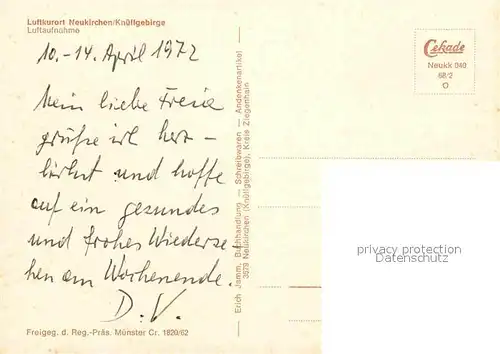 Luftkurort Neukirchen/Knüllgebirge
Luftaufnahme
10.-14. April 1972
Mein liebe
grüße ich herz-
lichst und hoffe
auf ein gesundes
und frohes Wiederse-
hen am Wochenende.
D. V.
Freigeg. d. Reg.-Präs. Münster Cr. 1820/62
Erich Jamm, Buchhandlung — Schreibwaren — Andenkenartikel
3579 Neukirchen (Knüllgebirge), Kreis Ziegenhain
Cekade
Neukk 040
68/2
O
privacy protection
Datenschutz